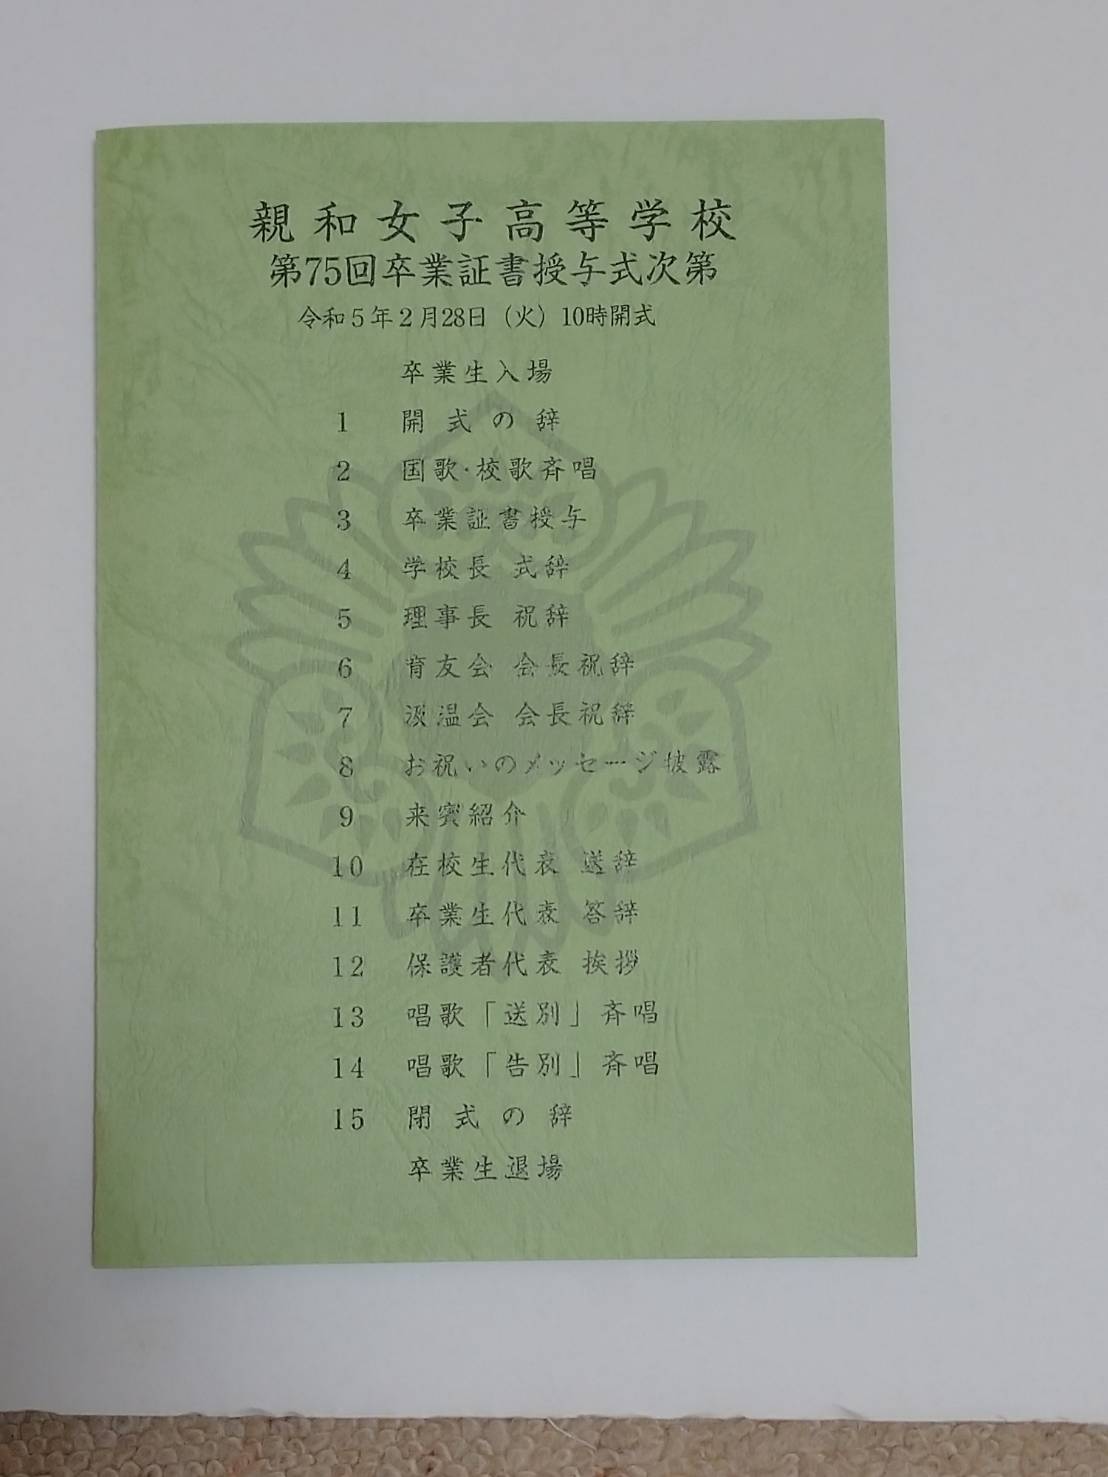 親和女子高等学校
第75回卒業証書授与式次第
令和5年2月28日（火）10時開式
卒業生入場
1 開式の辞
2 国歌・校歌斉唱
3 卒業証書授与
4 学校長 式辞
5 理事長 祝辞
6 育友会 会長祝辞
7 汲温会 会長祝辞
8 お祝いのメッセージ披露
9 来賓紹介
10 在校生代表 送辞
11 卒業生代表 答辞
12 保護者代表 挨拶
13 唱歌「送別」斉唱
14 唱歌「告別」斉唱
15 閉式の辞
卒業生退場